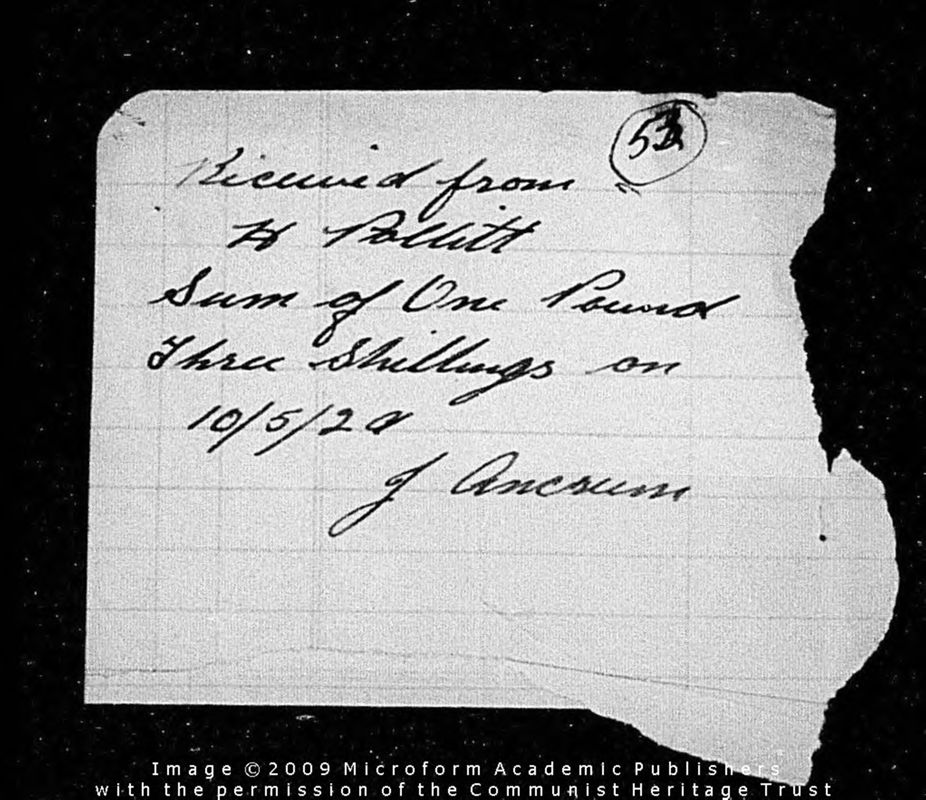 Received from
H Pollitt
Sum of One Pound
Three Shillings on
10/5/29
J Ancrum
Image © 2009 Microform Academic Publishers
with the permission of the Communist Heritage Trust